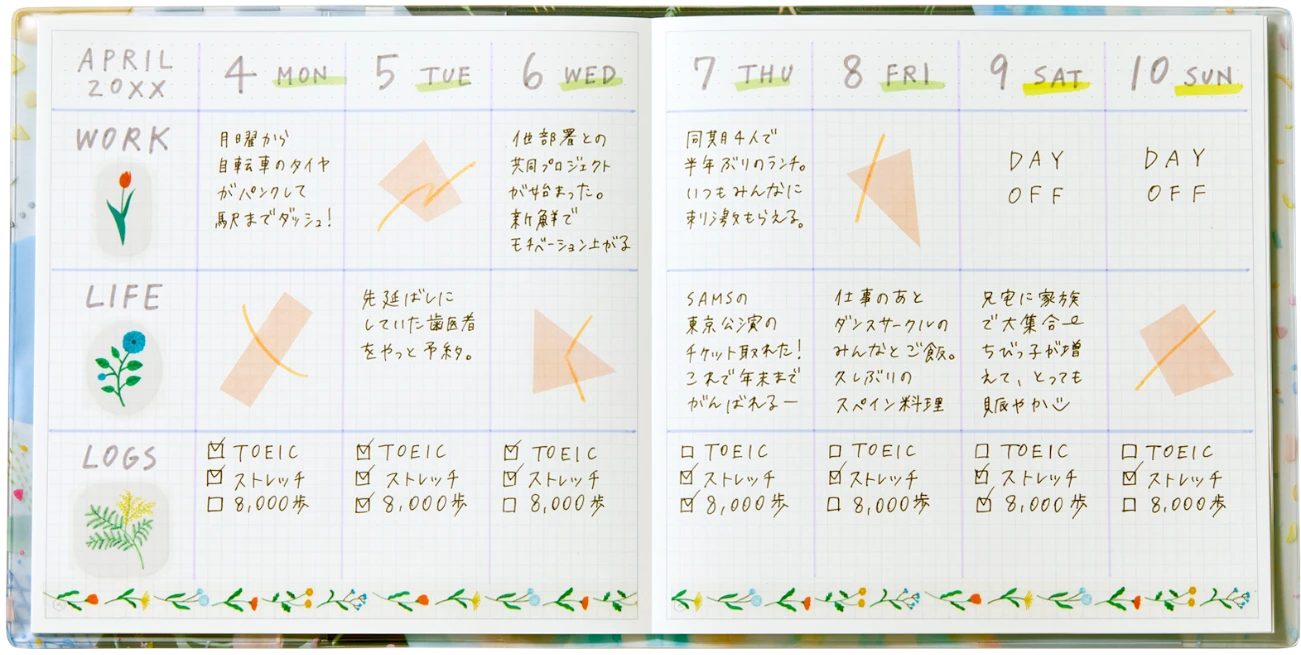 APRIL
20XX
4 MON
5 TUE
6 WED
7 THU
8 FRI
9 SAT
10 SUN
WORK
月曜から
自転車のタイヤ
がパンクして
駅までダッシュ!
他部署との
共同プロジェクト
が始まった。
新鮮で
モチベーション上がる
同期4人で
半年ぶりのランチ。
いつもみんなに
刺激もらえる。
DAY
OFF
DAY
OFF
LIFE
先延ばしに
していた歯医者
をやっと予約。
SAMSの
東京公演の
チケット取れた!
これで年末まで
がんばれるー
仕事のあと
ダンスサークルの
みんなとご飯。
久しぶりの
スペイン料理
兄宅に家族
で大集合
ちびっ子が増
えて、とっても
賑やか
LOGS
☑ TOEIC
☑ ストレッチ
☐ 8,000歩
☑ TOEIC
☑ ストレッチ
☑ 8,000歩
☑ TOEIC
☑ ストレッチ
☐ 8,000歩
☐ TOEIC
☑ ストレッチ
☑ 8,000歩
☐ TOEIC
☑ ストレッチ
☐ 8,000歩
☐ TOEIC
☑ ストレッチ
☑ 8,000歩
☐ TOEIC
☑ ストレッチ
☐ 8,000歩